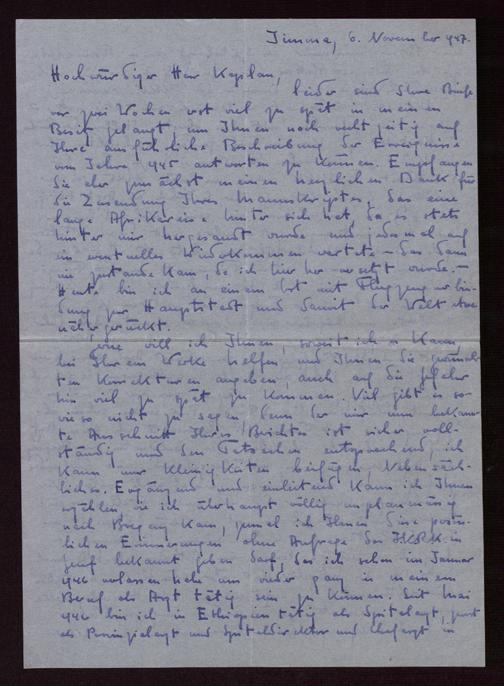 Jimma, 6. November 1947.
Hochwürdiger Herr Kaplan,
leider sind Ihre Briefe
vor zwei Wochen erst viel zu spät in meinen
Besitz gelangt, um Ihnen noch rechtzeitig auf
Ihre ausführliche Beschreibung der Ereignisse
vom Jahre 1945 antworten zu können. Empfangen
Sie aber zunächst meinen herzlichen Dank für
die Zusendung Ihres Manuskriptes, das eine
lange Afrikareise hinter sich hat, da es stets
hinter mir hergesandt wurde und jedesmal auf
ein eventuelles Wiederkommen wartete – das dann
nie zustande kam, da ich hierher versetzt wurde. –
Heute bin ich an einem Ort mit Flugzeugverbin-
dung zur Hauptstadt und damit der Welt etwas
näher gerückt.
Gerne will ich Ihnen, soweit ich es kann,
bei Ihrem Werke helfen und Ihnen die gewünsch-
ten Korrekturen angeben, auch auf die Gefahr
hin viel zu spät zu kommen. Viel gibt es so-
wieso nicht zu sagen denn der mir nun bekann-
te Ausschnitt Ihres Berichtes ist sicher voll-
ständig und den Tatsachen entsprechend, ich
kann nur Kleinigkeiten beifügen, Nebensäch-
liches. Ergänzend und einleitend kann ich Ihnen
erzählen, wie ich überhaupt völlig unplanmässig
nach Bregenz kam, zumal ich Ihnen diese persön-
lichen Erinnerungen ohne Anfrage des I.K.R.K. in
Genf bekannt geben darf, das ich schon im Januar
1946 verlassen habe um wieder ganz in meinem
Beruf als Arzt tätig sein zu können. Seit Mai
1946 bin ich in Ethiopien tätig als Spitalarzt, zuerst
als Provinzialarzt und Spitaldirektor und Chefarzt in